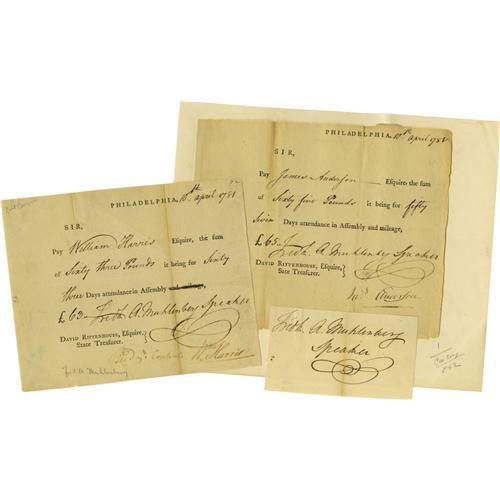 PHILADELPHIA, 10th April 1781
SIR,
Pay William Harris Esquire, the sum
of Sixty three Pounds it being for Sixty
three Days attendance in Assembly and mileage,
£ 63 Fredk. A. Muhlenberg Speaker
DAVID RITTENHOUSE, Esquire,
State Treasurer.
Contents Wm Harris
Fred A Muhlenberg
PHILADELPHIA, 10th April 1781
SIR,
Pay James Anderson Esquire, the sum
of Sixty five Pounds it being for fifty
Seven Days attendance in Assembly and mileage,
£ 65 Fredk. A. Muhlenberg Speaker
DAVID RITTENHOUSE, Esquire,
State Treasurer.
Anderson
Fredk. A. Muhlenberg
Speaker